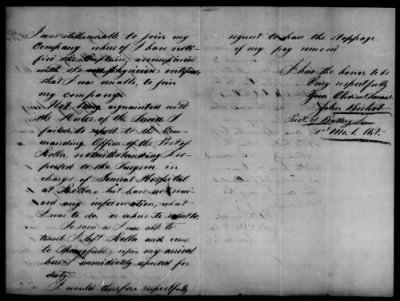 I was still unable to join my
Company when of I have noti-
fied the Captain, accompanied
with the physicians certificate
that I was unable, to join
my company
Not being acquainted with
the Rules of the Service I
failed to report to the Com-
manding Officer of the Post of
Rolla, notwithstanding I re-
ported to the Surgeon in
charge of General Hospital
at Rolla, but have not receiv-
ed any information, what
I was to do or where to
So soon as I was able to
travel I left Rolla and come
to Springfield, upon my arrival
here I immediately reported for
duty.
I would therefore respectfully
request to have the stoppage
of my pay removed
I have the honor to be
Very respectfully
Your Obedient Servant
John
Battery
1st Mo. L. Art.